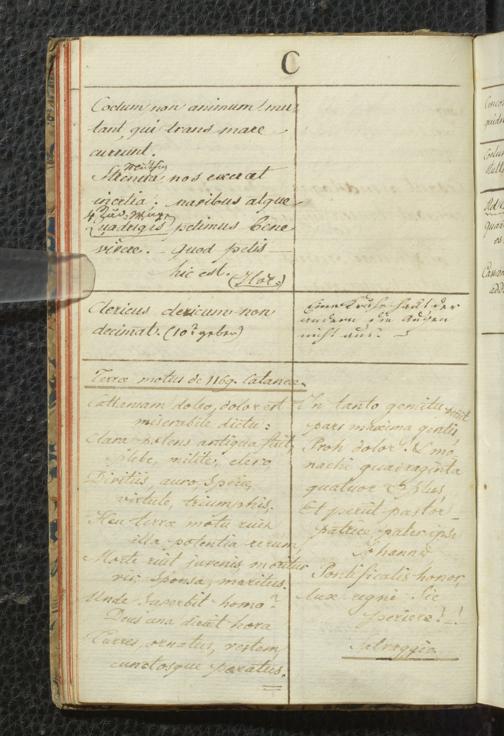 C
Coelum non animum mu-
tant qui trans mare
currunt.
Strenua nos exercet
inertia: navibus atque
Quadrigis petimus bene
vivere. quod petis
hic est. (Hor.)
Clericus clericum non
decimat. (10t geben)
Eine Krähe hackt der
andern die Augen
nicht aus.
Terrae motus de 1169. Catanae.
Cathaniam doleo, dolor est
miserabile dictu:
Clara potens antiqua fuit,
plebe, milite, clero,
Divitiis, auro, specie,
virtute, triumphis.
Heu terrae motu ruit
illa potentia rerum
Morte ruit juvenis, moritur
vir sponsa, maritus.
Unde superbit homo?
Deus una diruit hora
Turres, ornatus, vestem
cunctosque paratus.
In tanto gemitu periit
pars maxima gentis
Proh dolor! & mo-
nachi quadraginta
quatuor & plus
Et periit pastor
patriae, pater ipse
Johannes
Pontificalis honor,
lux regni sic
periere!!